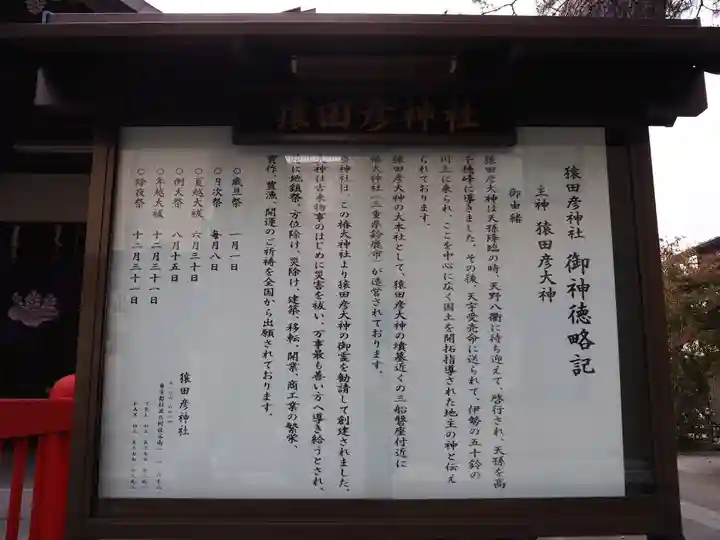 猿田彦神社
猿田彦神社 御神徳略記
主神 猿田彦大神
御由緒
猿田彦大神は天孫降臨の時、天野八衢に待ち迎えて、啓行され、天孫を高
千穂峰に導きました。その後、天宇受売命に送られて、伊勢の五十鈴の
川上に来られ、ここを中心に広く国土を開拓指導された地主の神と伝え
られております。
猿田彦大神の大本社として、猿田彦大神の墳墓近くの三船磐座付近に
椿大神社(三重県鈴鹿市)が造営されております。
神社は、この椿大神社より猿田彦大神の御霊を勧請して創建されました。
神は古来物事のはじめに災害を祓い、万事最も善い方へ導き給うとされ、
に地鎮祭、方位除け、災除け、建築、移転、開業、商工業の繁栄、
豊作、豊漁、開運のご祈祷を全国から出願されております。
○歳旦祭 一月一日
○月次祭 毎月八日
○夏越大祓 六月三十日
○例大祭 八月十五日
○年越大祓 十二月三十一日
○除夜祭 十二月三十一日
猿田彦神社